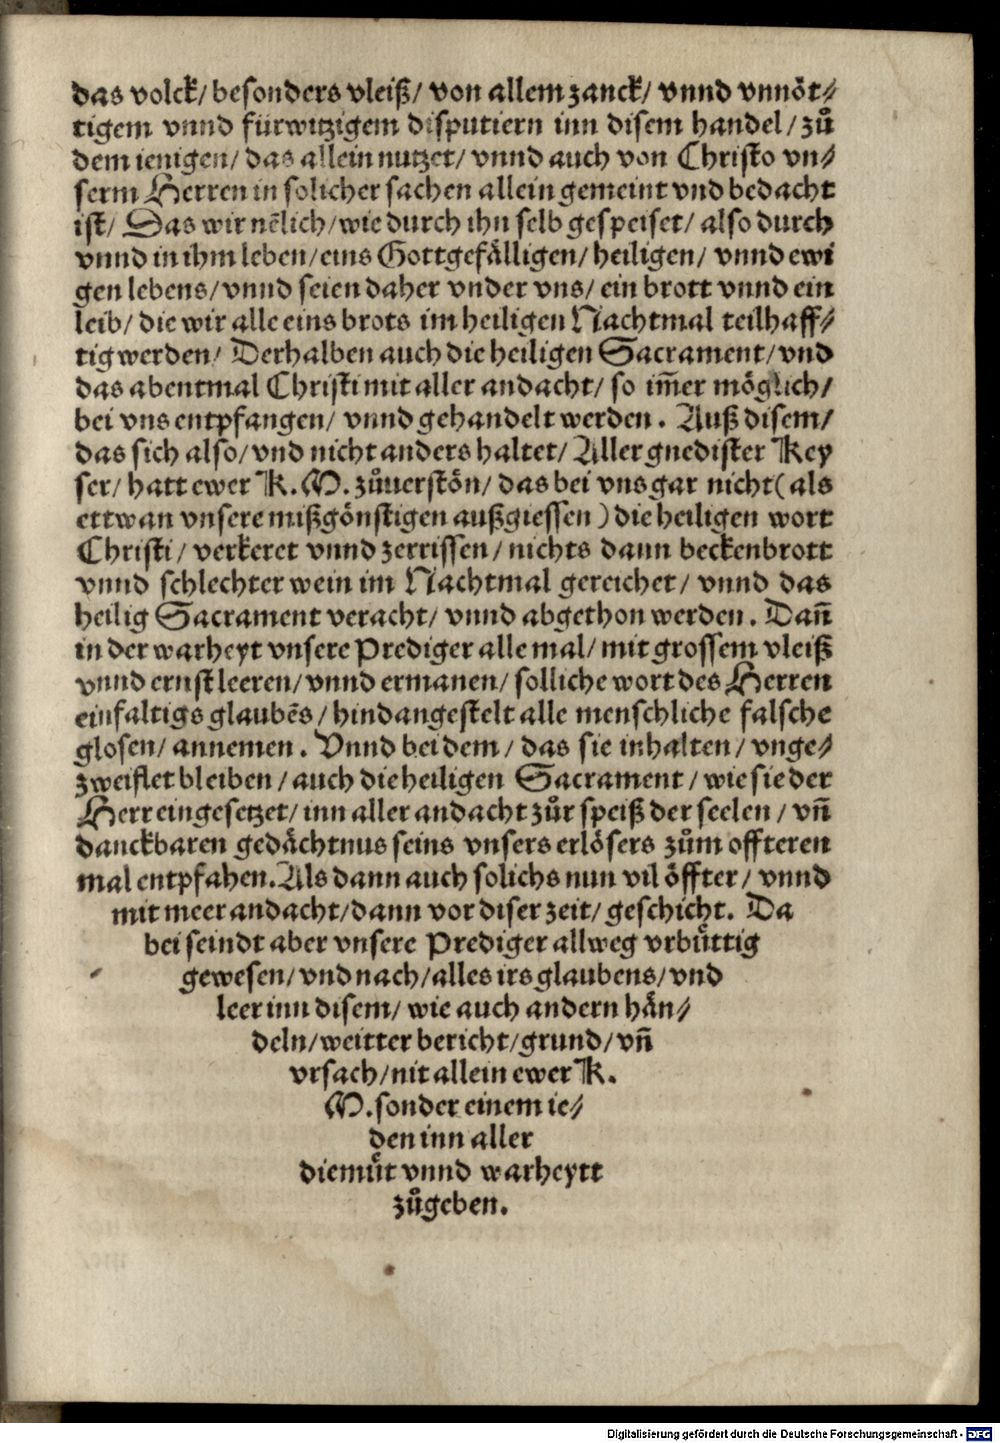 das volck/ besonders vleiß/ von allem zanck/ vnnd vnnöt⸗
tigem vnnd fürwitzigem disputiern inn disem handel/ zů
dem ienigen/ das allein nutzet/ vnnd auch von Christo vn⸗
serm Herren in solicher sachen allein gemeint vnd bedacht
ist/ Das wir nẽlich/ wie durch ihn selb gespeiset/ also durch
vnnd in ihm leben/ eins Gottgefälligen/ heiligen/ vnnd ewi
gen lebens/ vnnd seien daher vnder vns/ ein brott vnnd ein
leib/ die wir alle eins brots im heiligen Nachtmal teilhaff⸗
tig werden/ Derhalben auch die heiligen Sacrament/ vnd
das abentmal Christi mit aller andacht/ so im̃er möglich/
bei vns entpfangen/ vnnd gehandelt werden. Auß disem/
das sich also/ vnd nicht anders haltet/ Aller gnedister Key
ser/ hatt ewer K. M. zůuerstön/ das bei vns gar nicht (als
ettwan vnsere mißgönstigen außgiessen) die heiligen wort
Christi/ verkeret vnnd zerrissen/ nichts dann beckenbrott
vnnd schlechter wein im Nachtmal gereichet/ vnnd das
heilig Sacrament veracht/ vnnd abgethon werden. Dañ
in der warheyt vnsere Prediger alle mal/ mit grossem vleiß
vnnd ernst leeren/ vnnd ermanen/ solliche wort des Herren
einfaltigs glaubẽs/ hindangestelt alle menschliche falsche
glosen/ annemen. Vnnd bei dem/ das sie inhalten/ vnge⸗
zweiflet bleiben/ auch die heiligen Sacrament/ wie sie der
Herr eingesetzet/ inn aller andacht zůr speiß der seelen/ vñ
danckbaren gedächtnus seins vnsers erlösers zům offteren
mal entpfahen. Als dann auch solichs nun vil öffter/ vnnd
mit meer andacht/ dann vor diser zeit/ geschicht. Da
bei seindt aber vnsere Prediger allweg vrbüttig
gewesen/ vnd nach/ alles irs glaubens/ vnd
leer inn disem/ wie auch andern hän⸗
deln/ weitter bericht/ grund/ vñ
vrsach/ nit allein ewer K.
M. sonder einem ie⸗
den inn aller
diemůt vnnd warheytt
zůgeben.
Digitalisierung gefördert durch die Deutsche Forschungsgemeinschaft - DFG